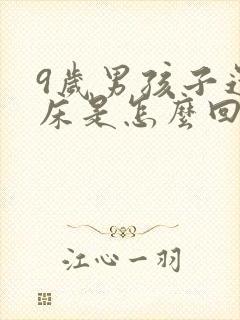 9歲男孩子還
床是怎麼回
江心一羽